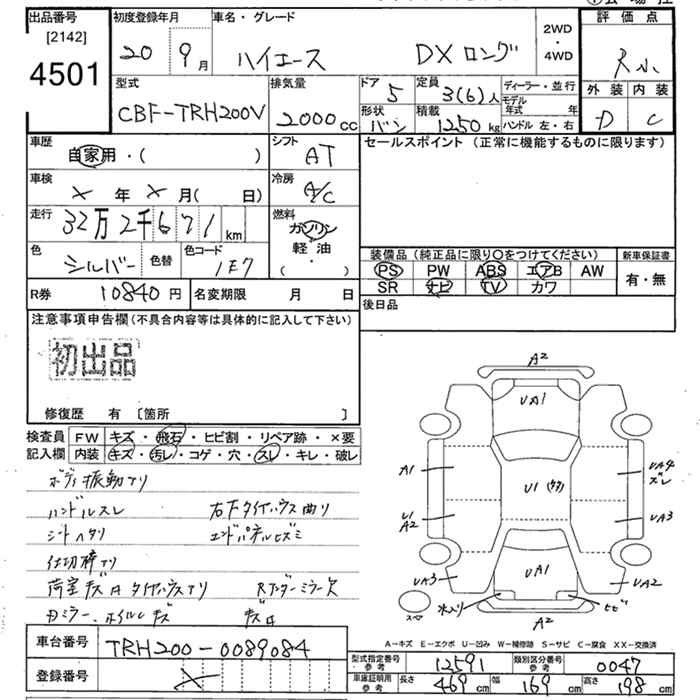 出品番号 初度登録年月 車名・グレード 2WD・4WD 評価点
[2142]
4501
20 9月 ハイエース DX ロング R小
型式 排気量 ドア 定員 ディーラー・並行 外装 内装
CBF-TRH200V 2000cc 5 3(6)人 モデル年式 年 D C
形状 積載 ハンドル 左・右
バン 1250kg
車歴 シフト セールスポイント (正常に機能するものに限ります)
自家用・( ) AT
車検 冷房
X 年 X 月( 日) A/C
走行 燃料
32万2千671km ガソリン
軽・油
( )
色 色替 色コード
シルバー 1E7
装備品 (純正品に限り○をつけてください) 新車保証書
PS PW ABS エアB AW 有・無
SR ナビ TV カワ
R券 10840円 名変期限 月 日 後日品
注意事項申告欄(不具合内容等は具体的に記入して下さい)
初出品
修復歴 有 [箇所 ]
検査員記入欄 FW キズ・飛石・ヒビ割・リペア跡・×要
内装 キズ・汚レ・コゲ・穴・スレ・キレ・破レ
ボディ振動アリ
ハンドルスレ 右下タイヤハウス曲リ
シートヘタリ エンドパネルヒズミ
仕切棒アリ
荷室キズ
ミラー・ホイルキズ
A2
UA1
A1 UA4
ズレ
U1
U1
A2 UA3
UA3 UA1 UA2
水入リ A2 ヒビ
スペ
A-キズ E-エクボ U-凹み W-補修跡 S-サビ C-腐食 XX-交換済
車台番号 TRH200-0089084
登録番号 X
型式指定番号参考 12591 類別区分番号参考 0047
車庫証明用参考 長さ 469cm 幅 169cm 高さ 198cm